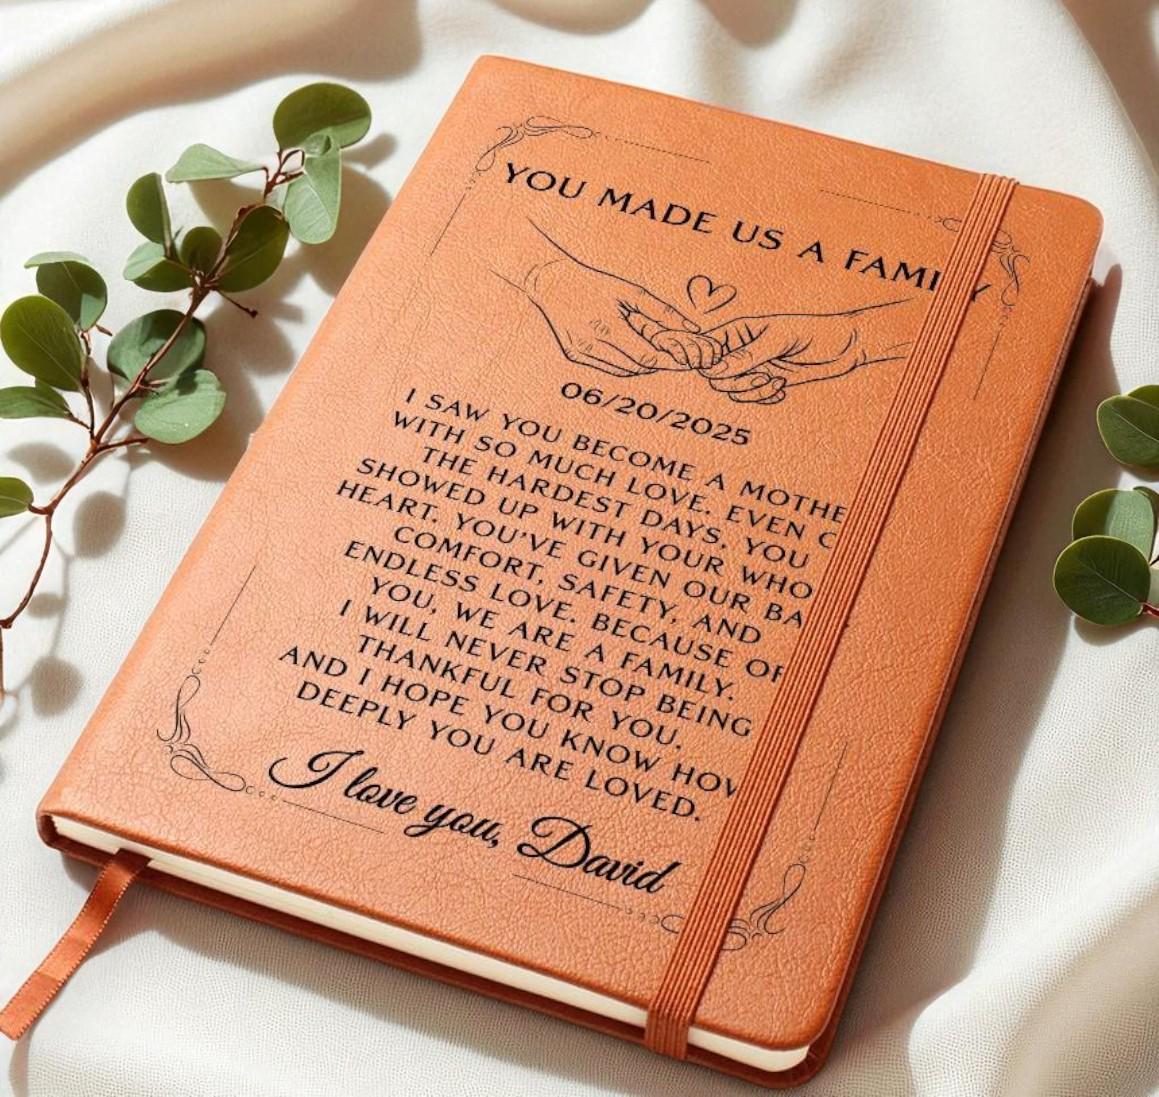 YOU MADE US A FAMILY
06/20/2025
I SAW YOU BECOME A MOTHE
WITH SO MUCH LOVE. EVEN
THE HARDEST DAYS, YOU
SHOWED UP WITH YOUR WHO
HEART. YOU'VE GIVEN OUR BA
COMFORT, SAFETY, AND
ENDLESS LOVE. BECAUSE OF
YOU, WE ARE A FAMILY.
I WILL NEVER STOP BEING
THANKFUL FOR YOU.
AND I HOPE YOU KNOW HOW
DEEPLY YOU ARE LOVED.
I love you, David